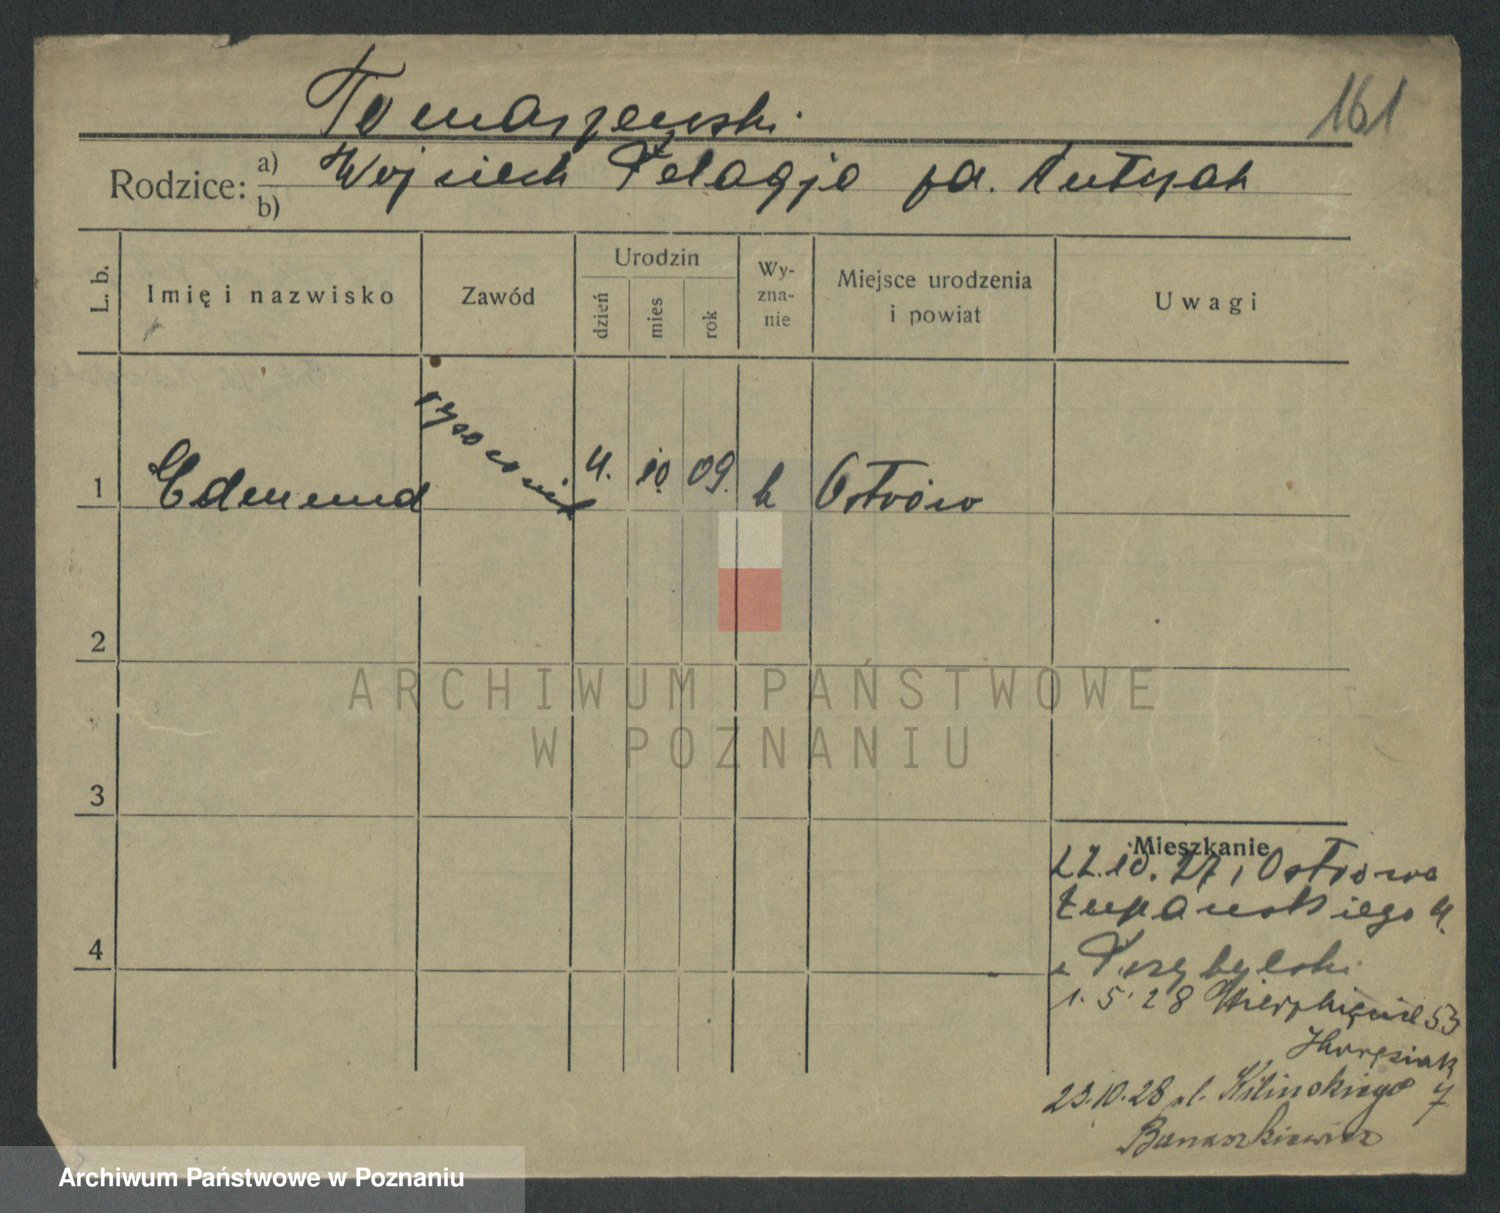 161
Tomaszewski
Rodzice: a) Wojciech Pelagja
b)
L. b. Imię i nazwisko Zawód Urodzin dzień mies rok Wyznanie Miejsce urodzenia i powiat Uwagi
1 Edmund rysownik 4. 10. 09. k Ostrów
2
3
4
Mieszkanie
22.10.27, Ostrowa
Łupańskiego 4.
Przybylski
1.5.28 Wierzbięcice 53
23.10.28 pl. Kilińskiego 7
Banaszkiewicz
ARCHIWUM PAŃSTWOWE
W POZNANIU
Archiwum Państwowe w Poznaniu